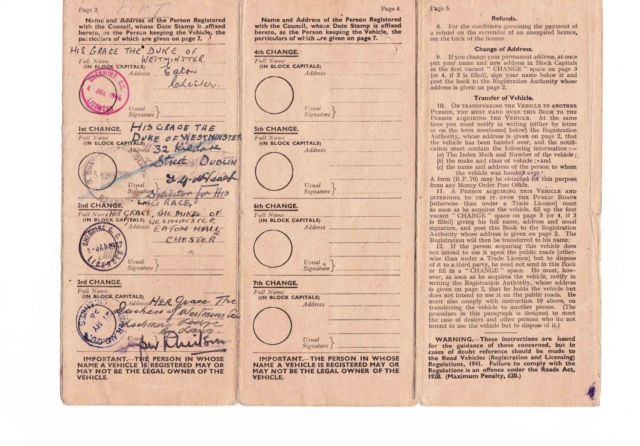 Page 3.
Name and Address of the Person Registered
with the Council, whose Date Stamp is affixed
hereto, as the Person keeping the Vehicle, the
particulars of which are given on page 7.
HIS GRACE THE DUKE OF
WESTMINSTER
Full Name
(IN BLOCK CAPITALS)
Address
Eaton
CHESHIRE CC
LICENCES
Usual
Signature
1st CHANGE.
HIS GRACE THE
DUKE OF WESTMINSTER
Full Name
(IN BLOCK CAPITALS)
32 Kildare
Address
Street DUBLIN
Usual
Signature
Solicitor for His
Grace
2nd CHANGE.
Full Name HIS GRACE, THE DUKE OF
(IN BLOCK CAPITALS) WESTMINSTER
Address EATON HALL
CHESTER
Usual
Signature
3rd CHANGE.
Full Name
(IN BLOCK CAPITALS)
Her Grace The
Address
Duchess of Westminster
Usual
Signature
IMPORTANT.—THE PERSON IN WHOSE
NAME A VEHICLE IS REGISTERED MAY OR
MAY NOT BE THE LEGAL OWNER OF THE
VEHICLE.
Page 4.
Name and Address of the Person Registered
with the Council, whose Date Stamp is affixed
hereto, as the Person keeping the Vehicle, the
particulars of which are given on page 7.
4th CHANGE.
Full Name
(IN BLOCK CAPITALS)
Address
Usual
Signature
5th CHANGE.
Full Name
(IN BLOCK CAPITALS)
Address
Usual
Signature
6th CHANGE.
Full Name
(IN BLOCK CAPITALS)
Address
Usual
Signature
7th CHANGE.
Full Name
(IN BLOCK CAPITALS)
Address
Usual
Signature
IMPORTANT.—THE PERSON IN WHOSE
NAME A VEHICLE IS REGISTERED MAY OR
MAY NOT BE THE LEGAL OWNER OF THE
VEHICLE.
Page 5.
Refunds.
8. For the conditions governing the payment of
a refund on the surrender of an unexpired licence,
see the back of the licence.
Change of Address.
9. If you change your permanent address, at once
put your name and new address in Block Capitals
in the first vacant "CHANGE" space on page 3
(or 4, if 3 is filled), sign your name below it and
post the book to the Registration Authority whose
address is given on page 2.
Transfer of Vehicle.
10. ON TRANSFERRING THE VEHICLE TO ANOTHER
PERSON, YOU MUST HAND OVER THIS BOOK TO THE
PERSON ACQUIRING THE VEHICLE. At the same
time you must notify in writing (either by letter
or on the form mentioned below) the Registration
Authority, whose address is given on page 2, that
the vehicle has been handed over, and the notifi-
cation must contain the following information:—
(a) The Index Mark and Number of the vehicle;
(b) the make and class of vehicle;
(c) the name and address of the person to whom
the vehicle was handed over.
A form (R.F. 70) may be obtained for this purpose
from any Money Order Post Office.
11. A PERSON ACQUIRING THIS VEHICLE AND
INTENDING TO USE IT UPON THE PUBLIC ROADS
(otherwise than under a Trade Licence) must
as soon as he acquires the vehicle, fill up the first
vacant "CHANGE" space on page 3 (or 4, if 3
is filled) giving his full name, address and usual
signature, and post this Book to the Registration
Authority whose address is given on page 2. The
Registration will then be transferred to his name.
12. If the person acquiring this vehicle does
not intend to use it upon the public roads (other-
wise than under a Trade Licence) but to dispose
of it to a third party, he need not send in this Book
or fill in a "CHANGE" space. He must, how-
ever, as soon as he acquires the vehicle, notify in
writing the Registration Authority, whose address
is given on page 2, that he holds the vehicle but
does not intend to use it on the public roads. He
must also comply with instruction 10 above, on
transferring the vehicle to another person. (The
procedure in this paragraph is designed to meet
the case of dealers and other persons who do not
intend to use the vehicle but to dispose of it.)
WARNING.—These instructions are issued
for the guidance of those concerned, but in
cases of doubt reference should be made to
the Road Vehicles (Registration and Licensing)
Regulations, 1941. Failure to comply with the
Regulations is an offence under the Roads Act,
1920. (Maximum Penalty, £20.)